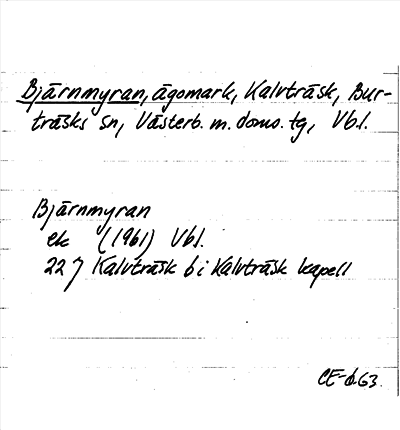 Bjärnmyran, ägomark, Kalvträsk, Bur-
träsks sn, Västerb. m. doms. tg, Vbl.
Bjärnmyran
ek (1961) Vbl.
22 J Kalvträsk 6 i Kalvträsk kapell
CE-663.